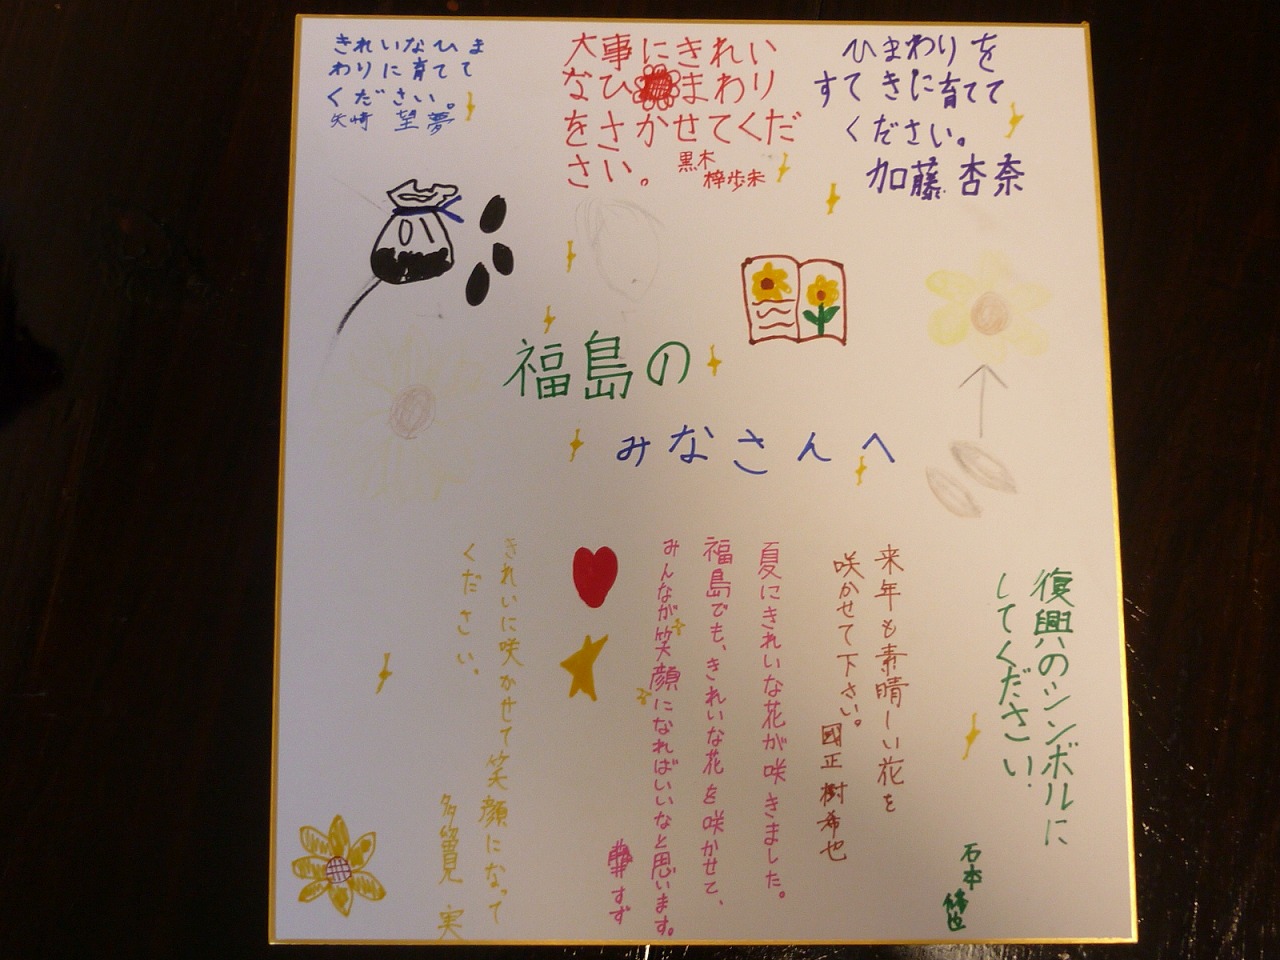 きれいなひま
わりに育てて
ください。
矢崎 望夢
大事にきれい
なひまわり
をさかせてくだ
さい。
黒木
梓歩未
ひまわりを
すてきに育てて
ください。
加藤 杏奈
福島の
みなさんへ
復興のシンボルに
してください!
石本
来年も素晴しい花を
咲かせて下さい。
國正 樹希也
夏にきれいな花が咲きました。
福島でも、きれいな花を咲かせて、
みんなが笑顔になればいいなと思います。
すず
きれいに咲かせて笑顔になって
ください。
多賀見 実